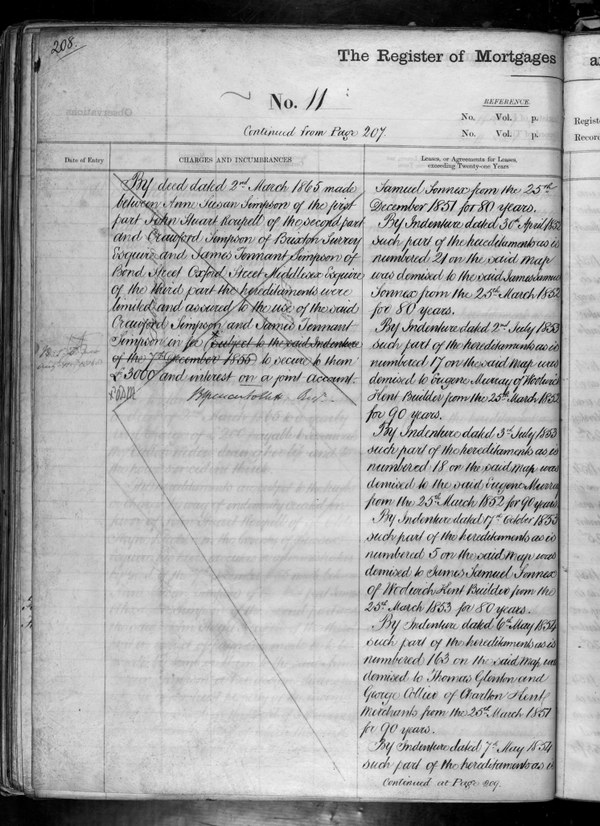 208.
The Register of Mortgages
No. 11
REFERENCE.
No. Vol. p.
No. Vol. p.
Continued from Page 207.
Date of Entry
CHARGES AND INCUMBRANCES
Leases, or Agreements for Leases,
exceeding Twenty-one Years
By deed dated 2nd March 1865 made
between Ann Susan Simpson of the first
part John Stuart Roupell of the second part
and Crawford Simpson of Brixton Surrey
Esquire and James Tennant Simpson of
Bond Street Oxford Street Middlesex Esquire
of the third part the hereditaments were
limited and assured to the use of the said
Crawford Simpson and James Tennant
Simpson in fee (subject to the said Indenture
of the 7th December 1855) to secure to them
£3000 and interest on a joint account.
Samuel Tonnex from the 25th
December 1851 for 80 years.
By Indenture dated 30th April 1852
such part of the hereditaments as is
numbered 21 on the said map
was demised to the said James Samuel
Tonnex from the 25th March 1852
for 80 years.
By Indenture dated 2nd July 1853
such part of the hereditaments as is
numbered 17 on the said map was
demised to Eugene Murray of Woolwich
Kent Builder from the 25th March 1852
for 90 years.
By Indenture dated 3rd July 1853
such part of the hereditaments as is
numbered 18 on the said map was
demised to the said Eugene Murray
from the 25th March 1852 for 90 years
By Indenture dated 17th October 1853
such part of the hereditaments as is
numbered 5 on the said map was
demised to James Samuel Tonnex
of Woolwich Kent Builder from the
25th March 1853 for 80 years.
By Indenture dated 6th May 1854
such part of the hereditaments as is
numbered 163 on the said map was
demised to Thomas Glenton and
George Collier of Charlton Kent
Merchants from the 25th March 1851
for 90 years.
By Indenture dated 7th May 1854
such part of the hereditaments as is
Continued at Page 209.